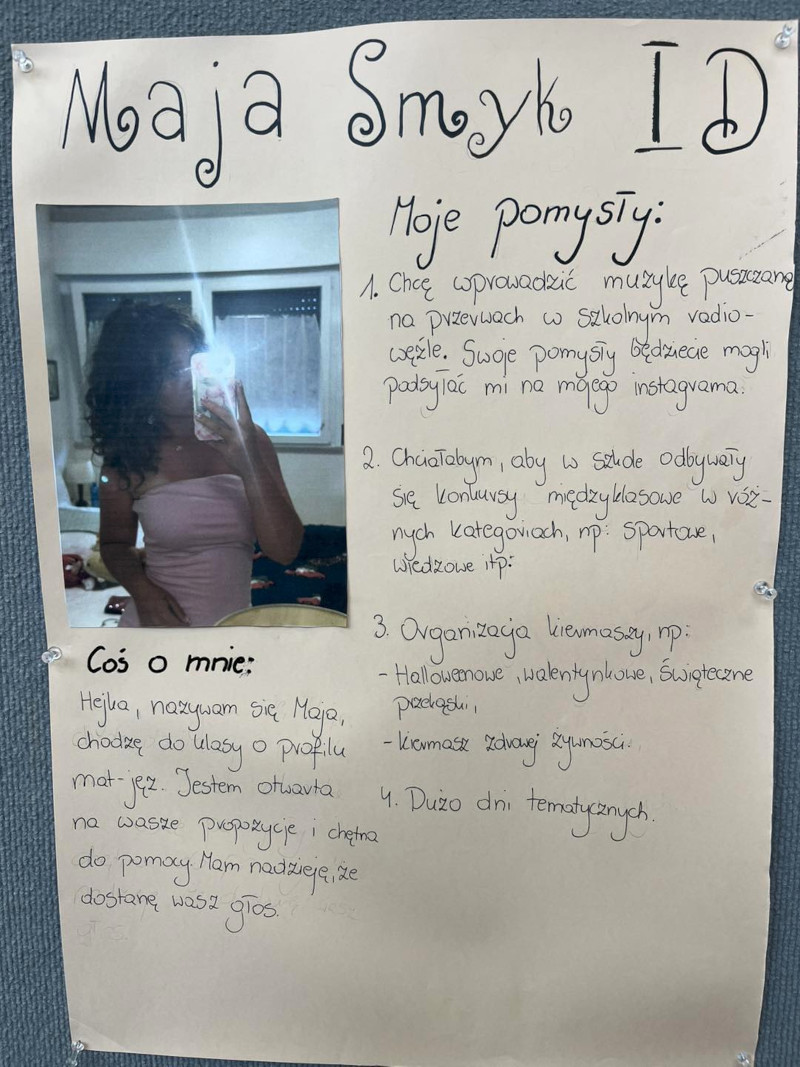 Maja Smyk ID
Coś o mnie:
Hejka, nazywam się Maja,
chodzę do klasy o profilu
mat-jęz. Jestem otwarta
na wasze propozycje i chętna
do pomocy. Mam nadzieję, że
dostanę wasz głos.
Moje pomysły:
1. Chcę wprowadzić muzykę puszczaną
na przerwach w szkolnym radio-
węźle. Swoje pomysły będziecie mogli
podsyłać mi na mojego instagrama.
2. Chciałabym, aby w szkole odbywały
się konkursy międzyklasowe w róż-
nych kategoriach, np: sportowe,
wiedzowe itp:
3. Organizacja kiermaszy, np:
- Halloweenowe, walentynkowe, świąteczne
przekąski,
- kiermasz zdrowej żywności.
4. Dużo dni tematycznych.